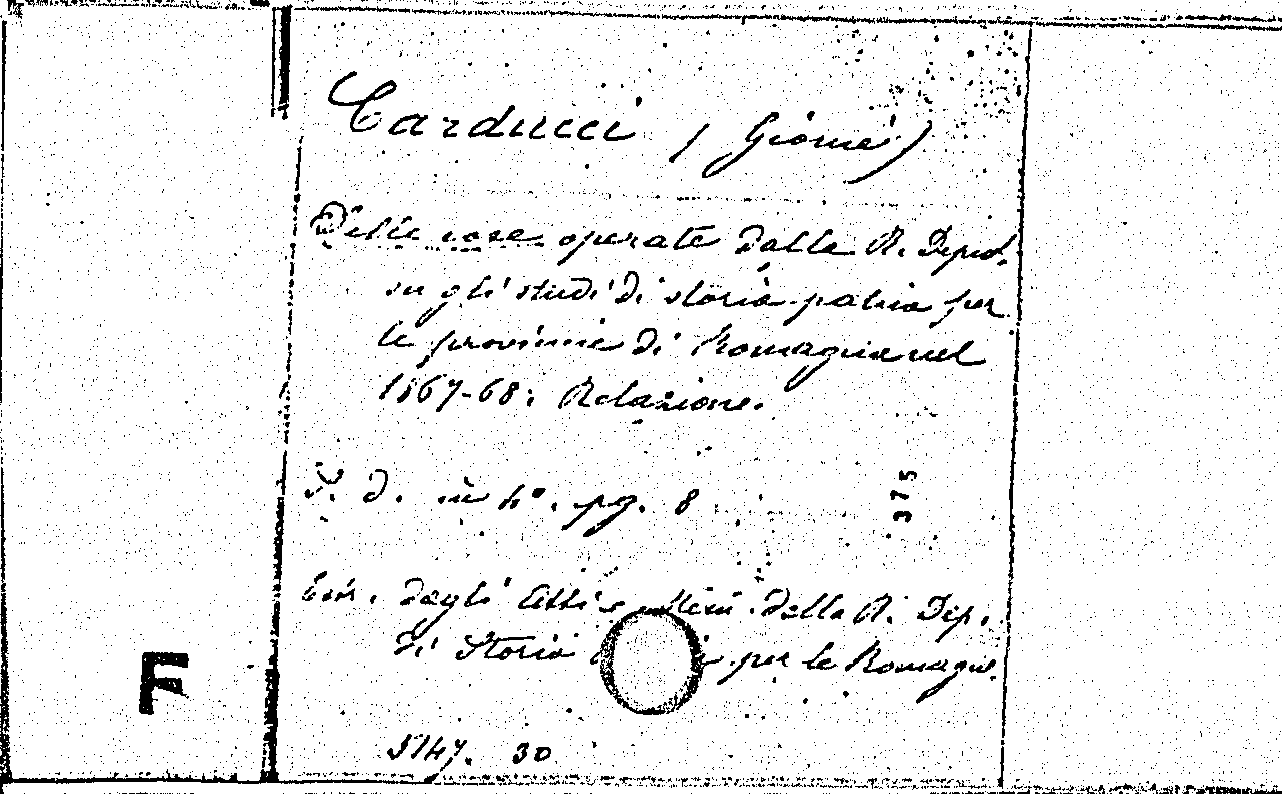 Carducci (Giosuè)
Delle cose operate dalla R. Deput.
su gli studi di storia patria per
le provincie di Romagna nel
1867-68: Relazione.
S. d. in 4°. pg. 8
375
Estr. dagli Atti e della R. Dep.
di Storia per le Romagne.
F
5147. 30